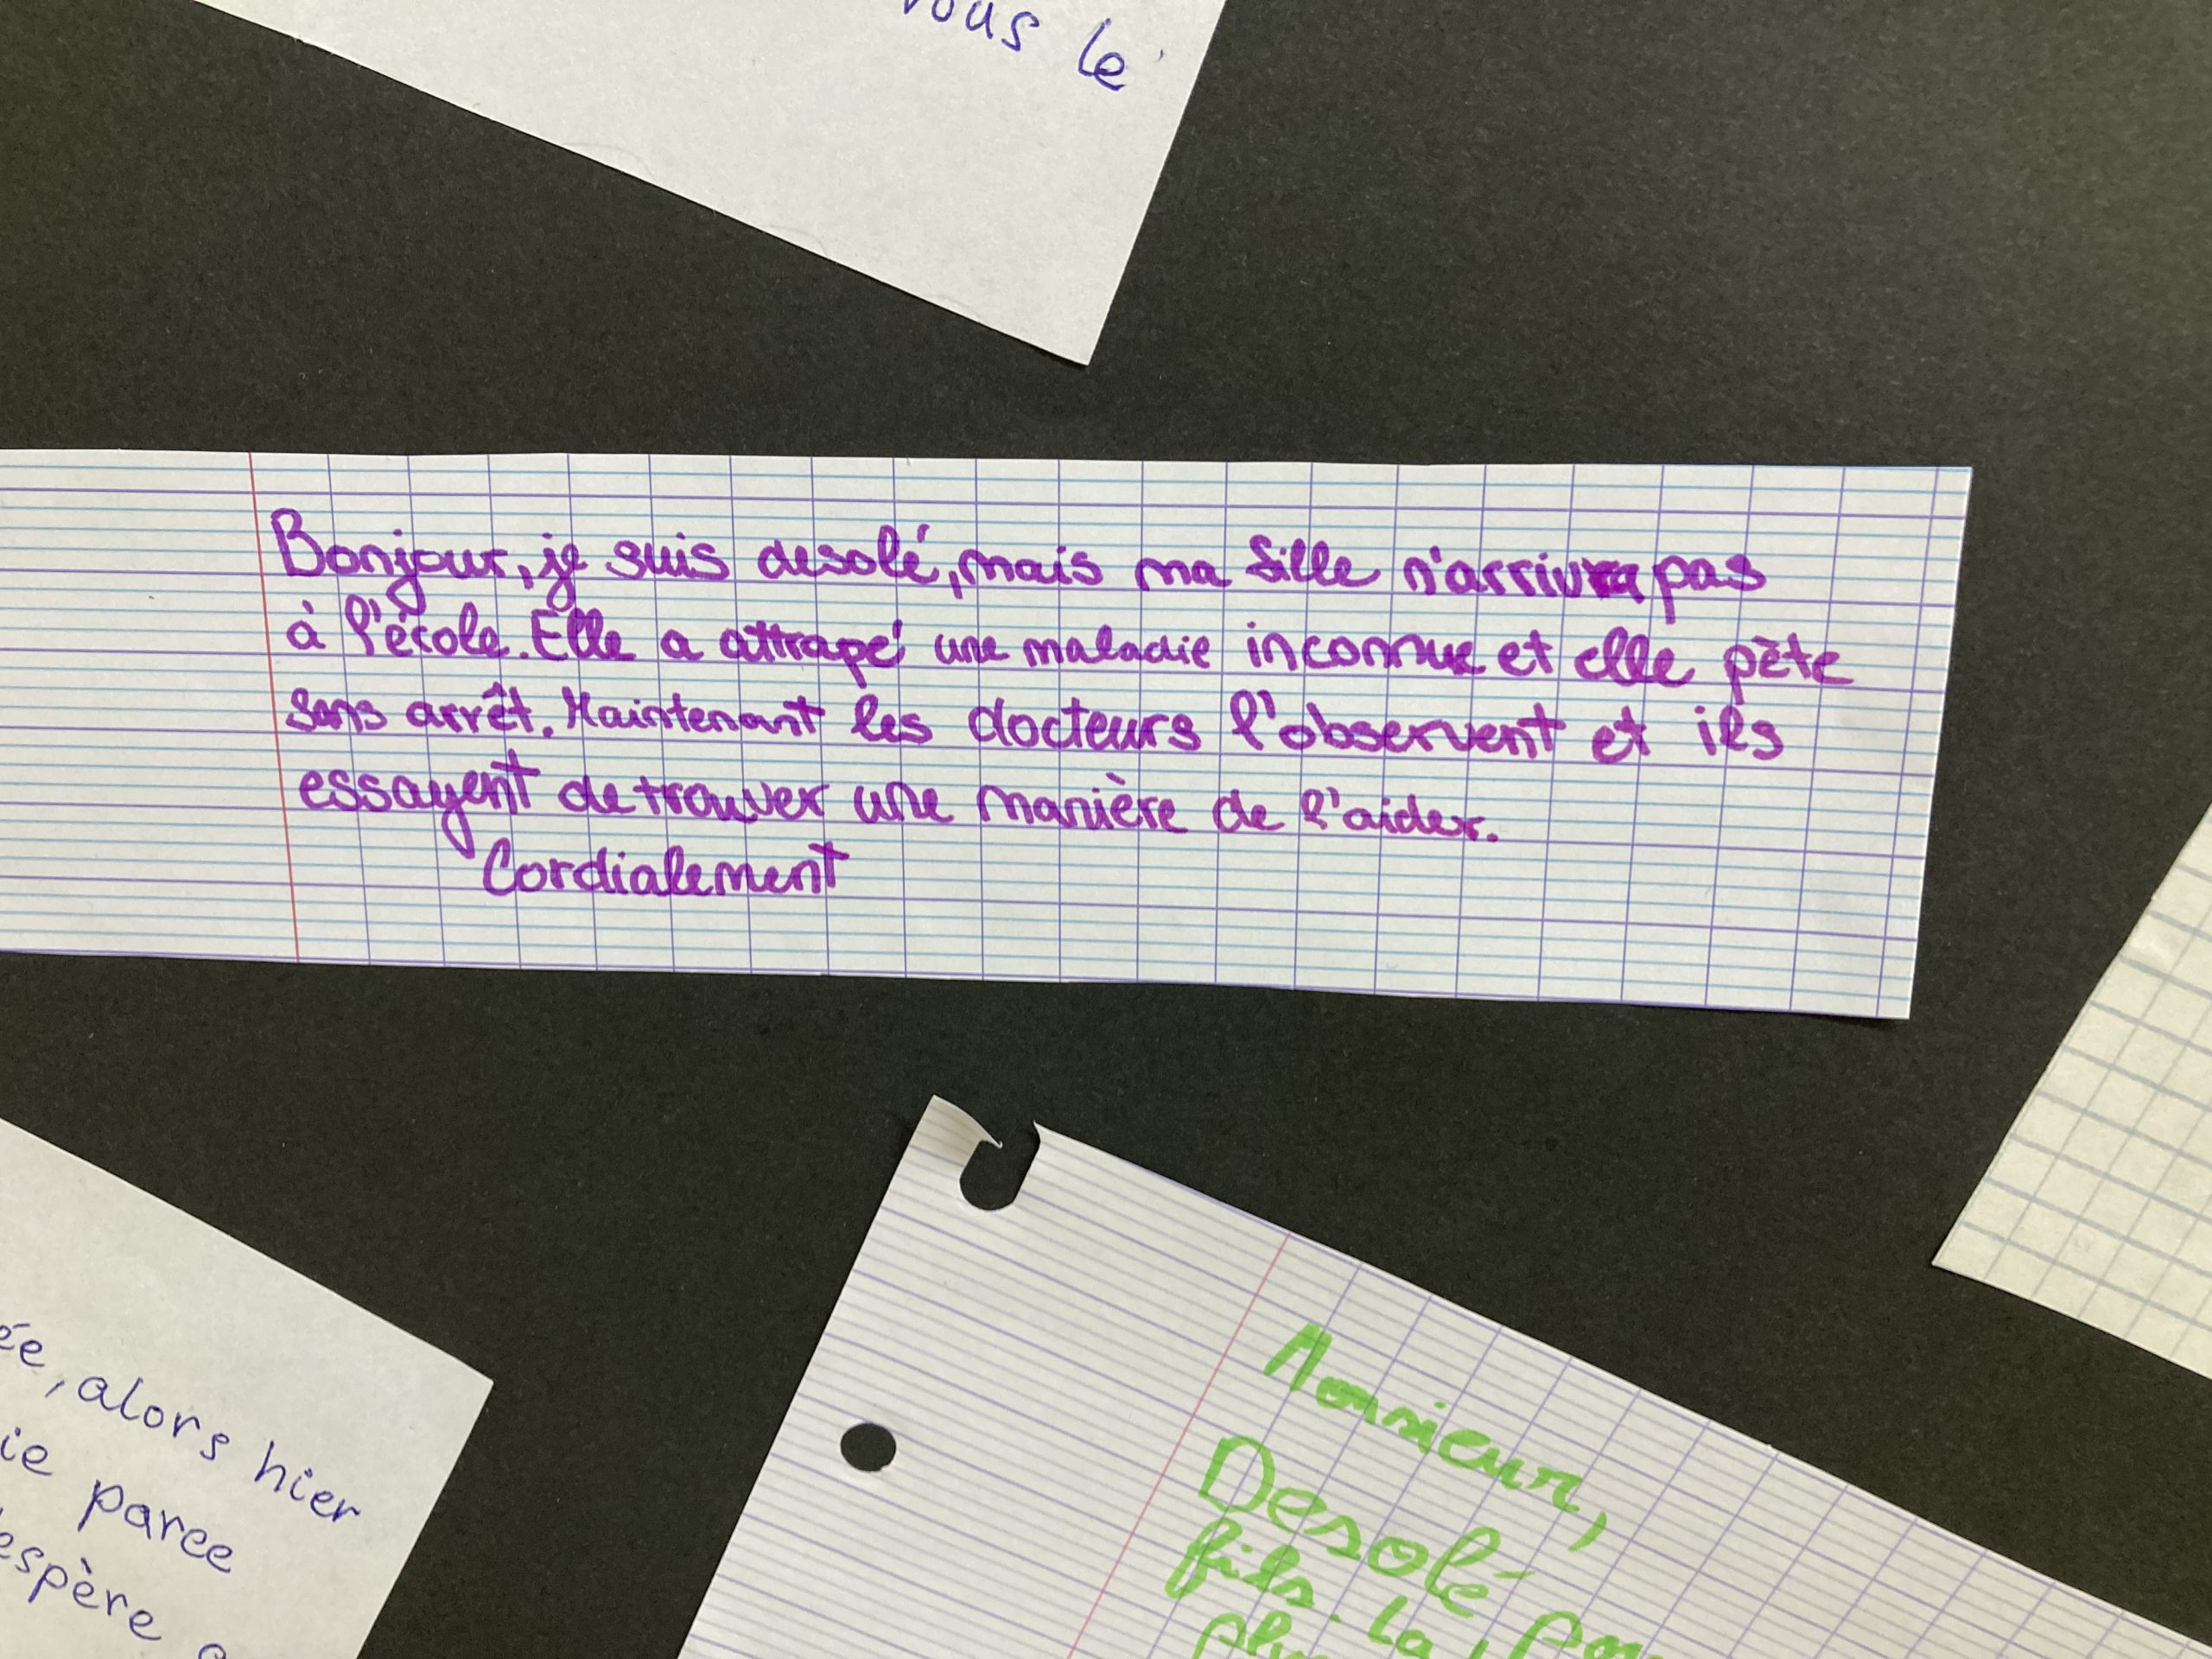 vous le
Bonjour, je suis desolé, mais ma fille n'arrivra pas
à l'école. Elle a attrapé une maladie inconnue et elle pète
sans arrêt. Maintenant les docteurs l'observent et ils
essayent de trouver une manière de l'aider.
Cordialement
ée, alors hier
ie parce
espère
Monsieur,
Desolé
fils. La